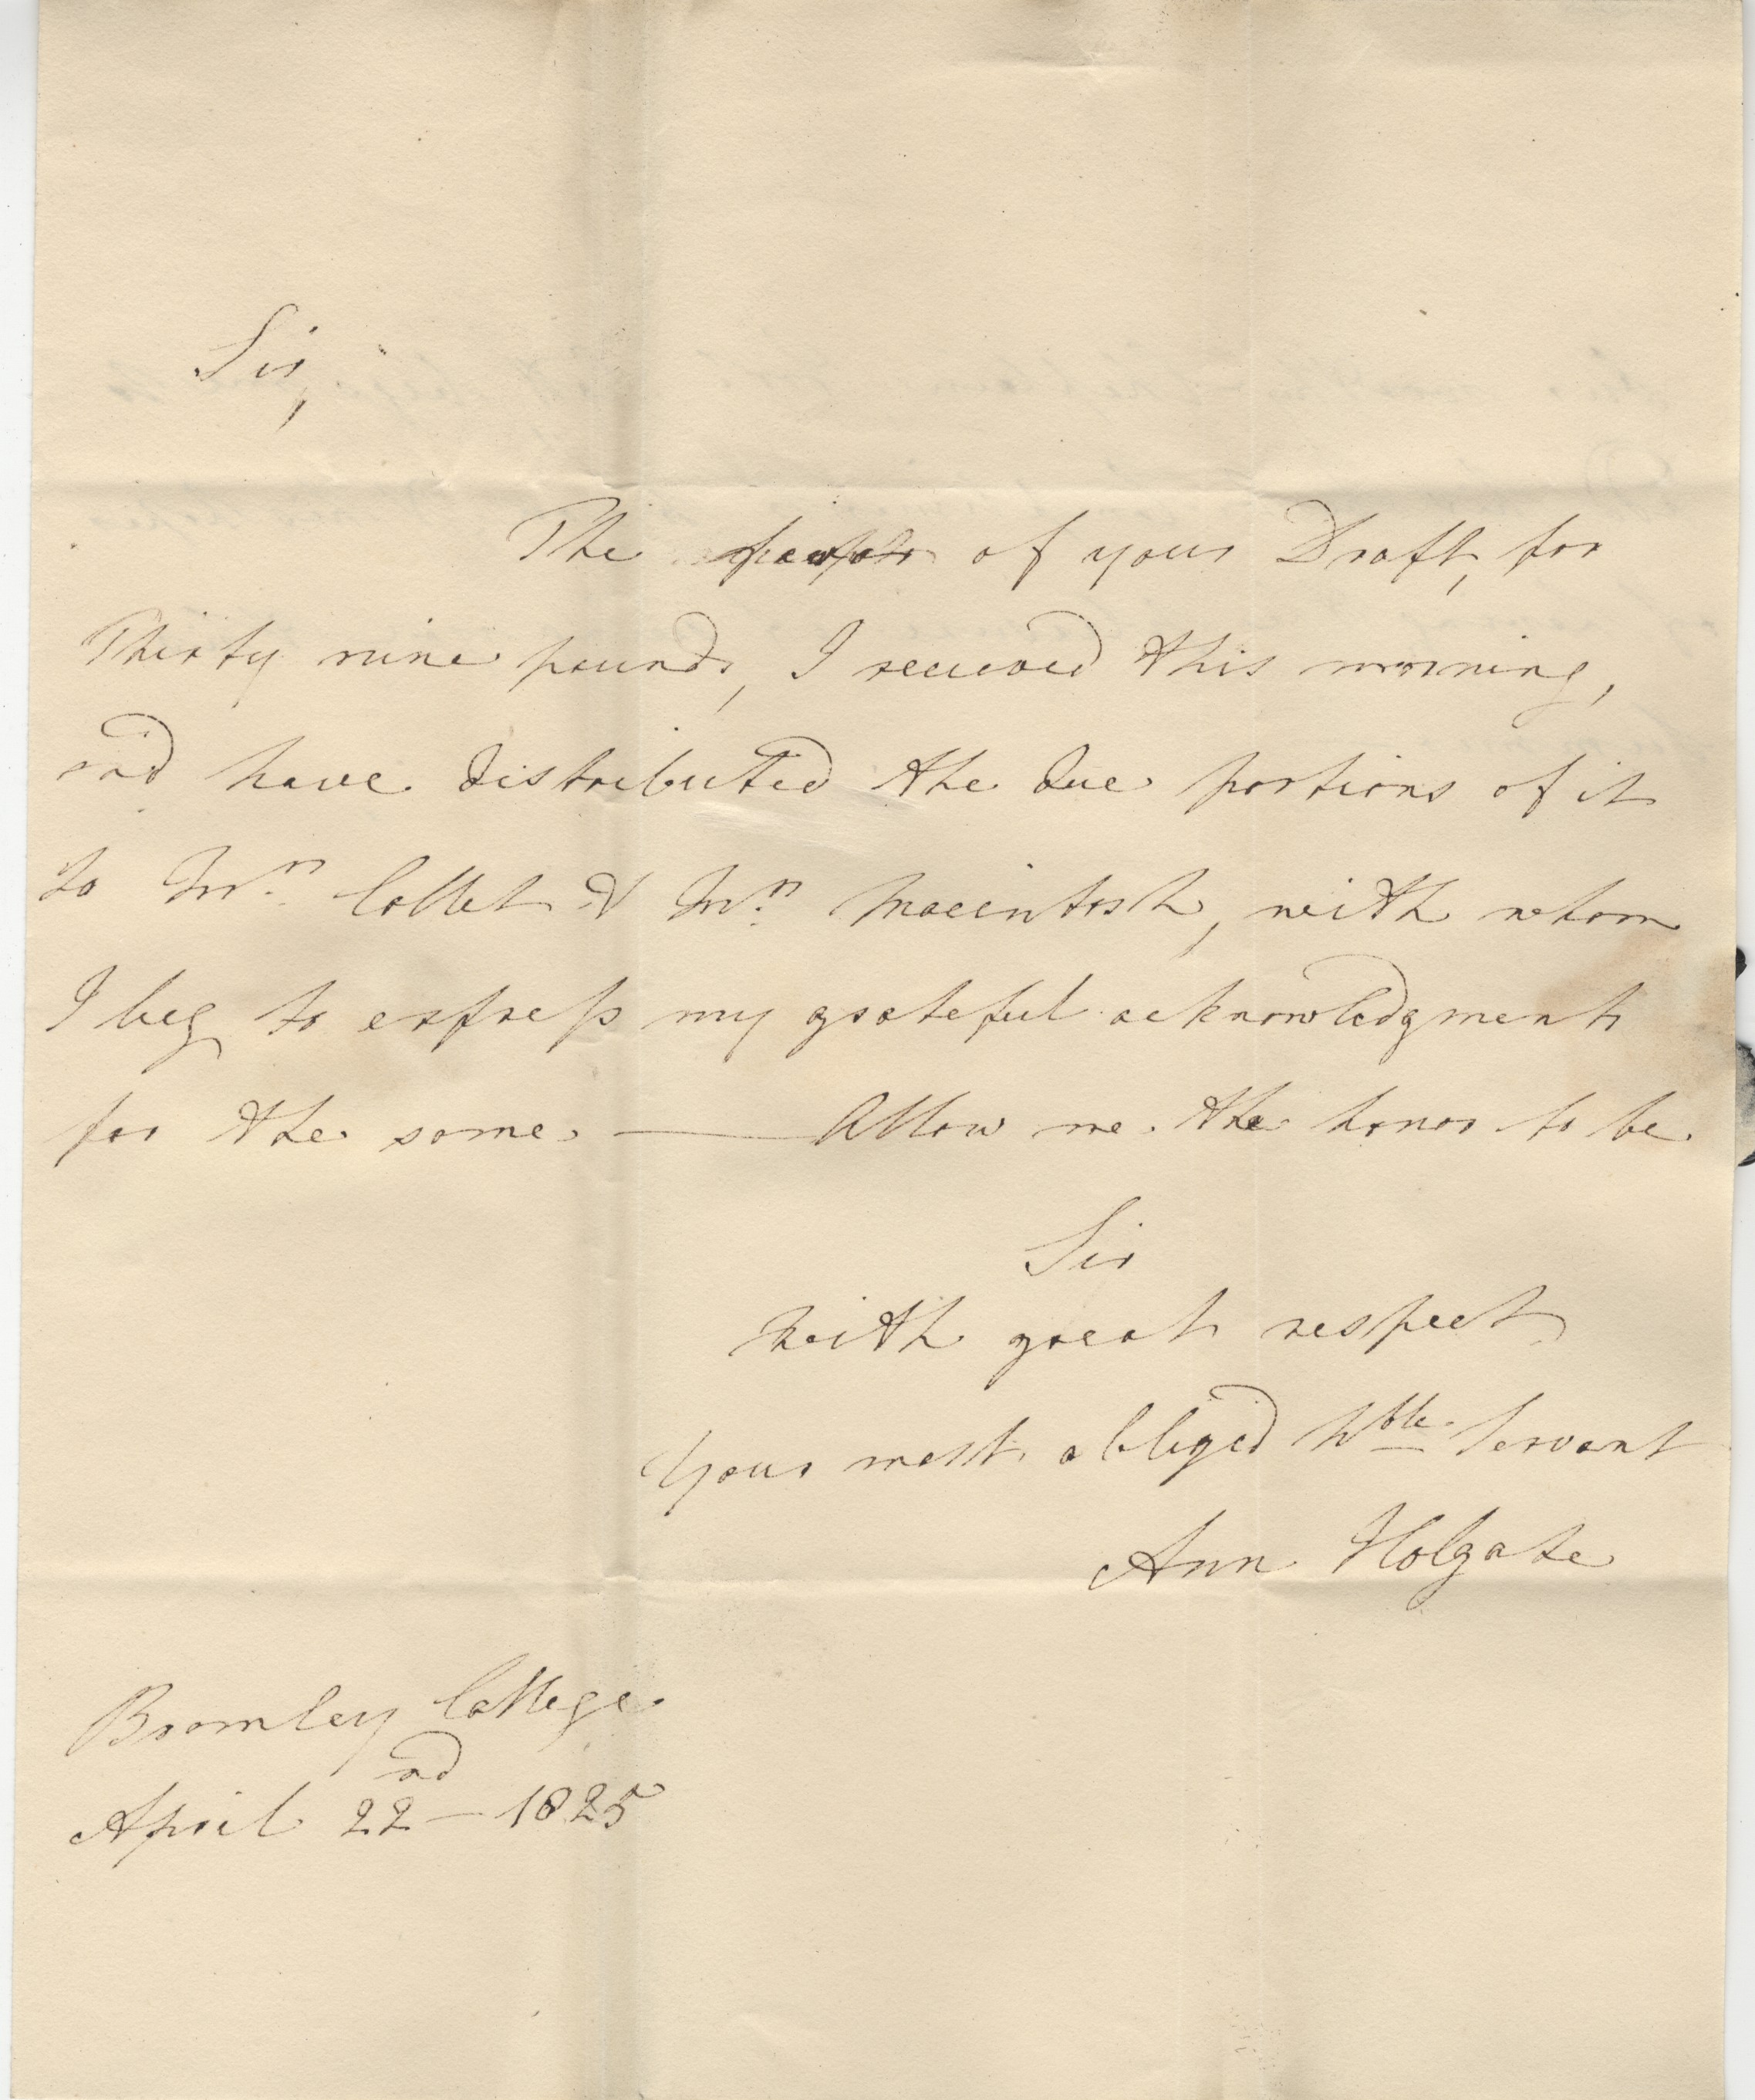 Sir,
The favor of your Draft, for
Thirty nine pounds, I received this morning,
and have distributed the due portions of it
to Mrs. Collet & Mrs. Macintosh, with whom
I beg to express my grateful acknowledgments
for the same. — Allow me the honor to be
Sir
With great respect
Your most obliged Hble. Servant
Ann Holgate
Bromley College
April 22nd — 1825